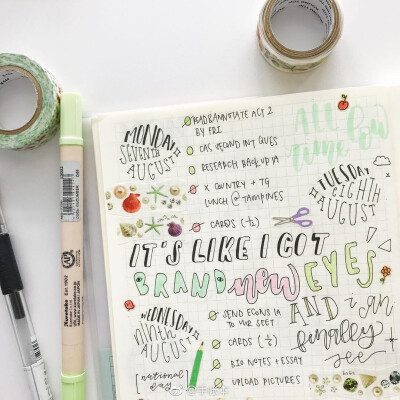 MONDAY
SEVENTH
AUGUST
READ&ANNOTATE ACT 2
BY FRI
CAS, VECOND INT QUES
RESEARCH BACKUP VA
X COUNTRY + TG
LUNCH @ TAMPINES
CARDS (½)
All
time
TUESDAY
EIGHTH
AUGUST
IT'S LIKE I GOT
BRAND new EYES
AND i can
finally
see
WEDNESDAY
ninth
AUGUST
[national
day
SEND ECONS IA
TO MR SEET
CARDS (½)
BIO NOTES + ESSAY
UPLOAD PICTURES
Kuretake
AP